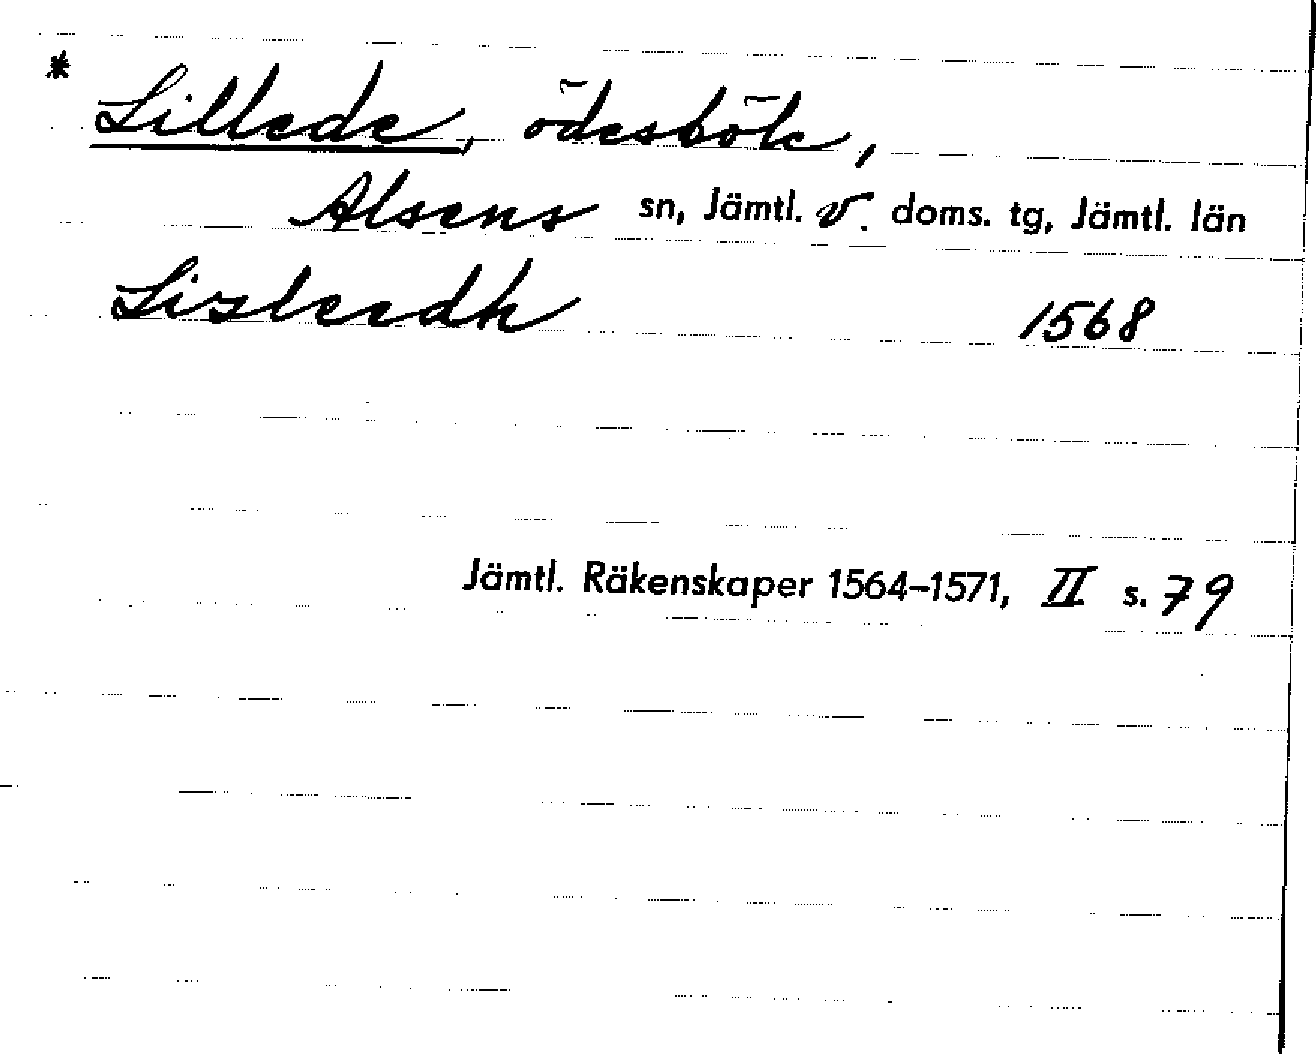 * Lillede, ödesböle,
Alsens sn, Jämtl. v. doms. tg, Jämtl. län
Lisleedh 1568
Jämtl. Räkenskaper 1564-1571, II s. 79